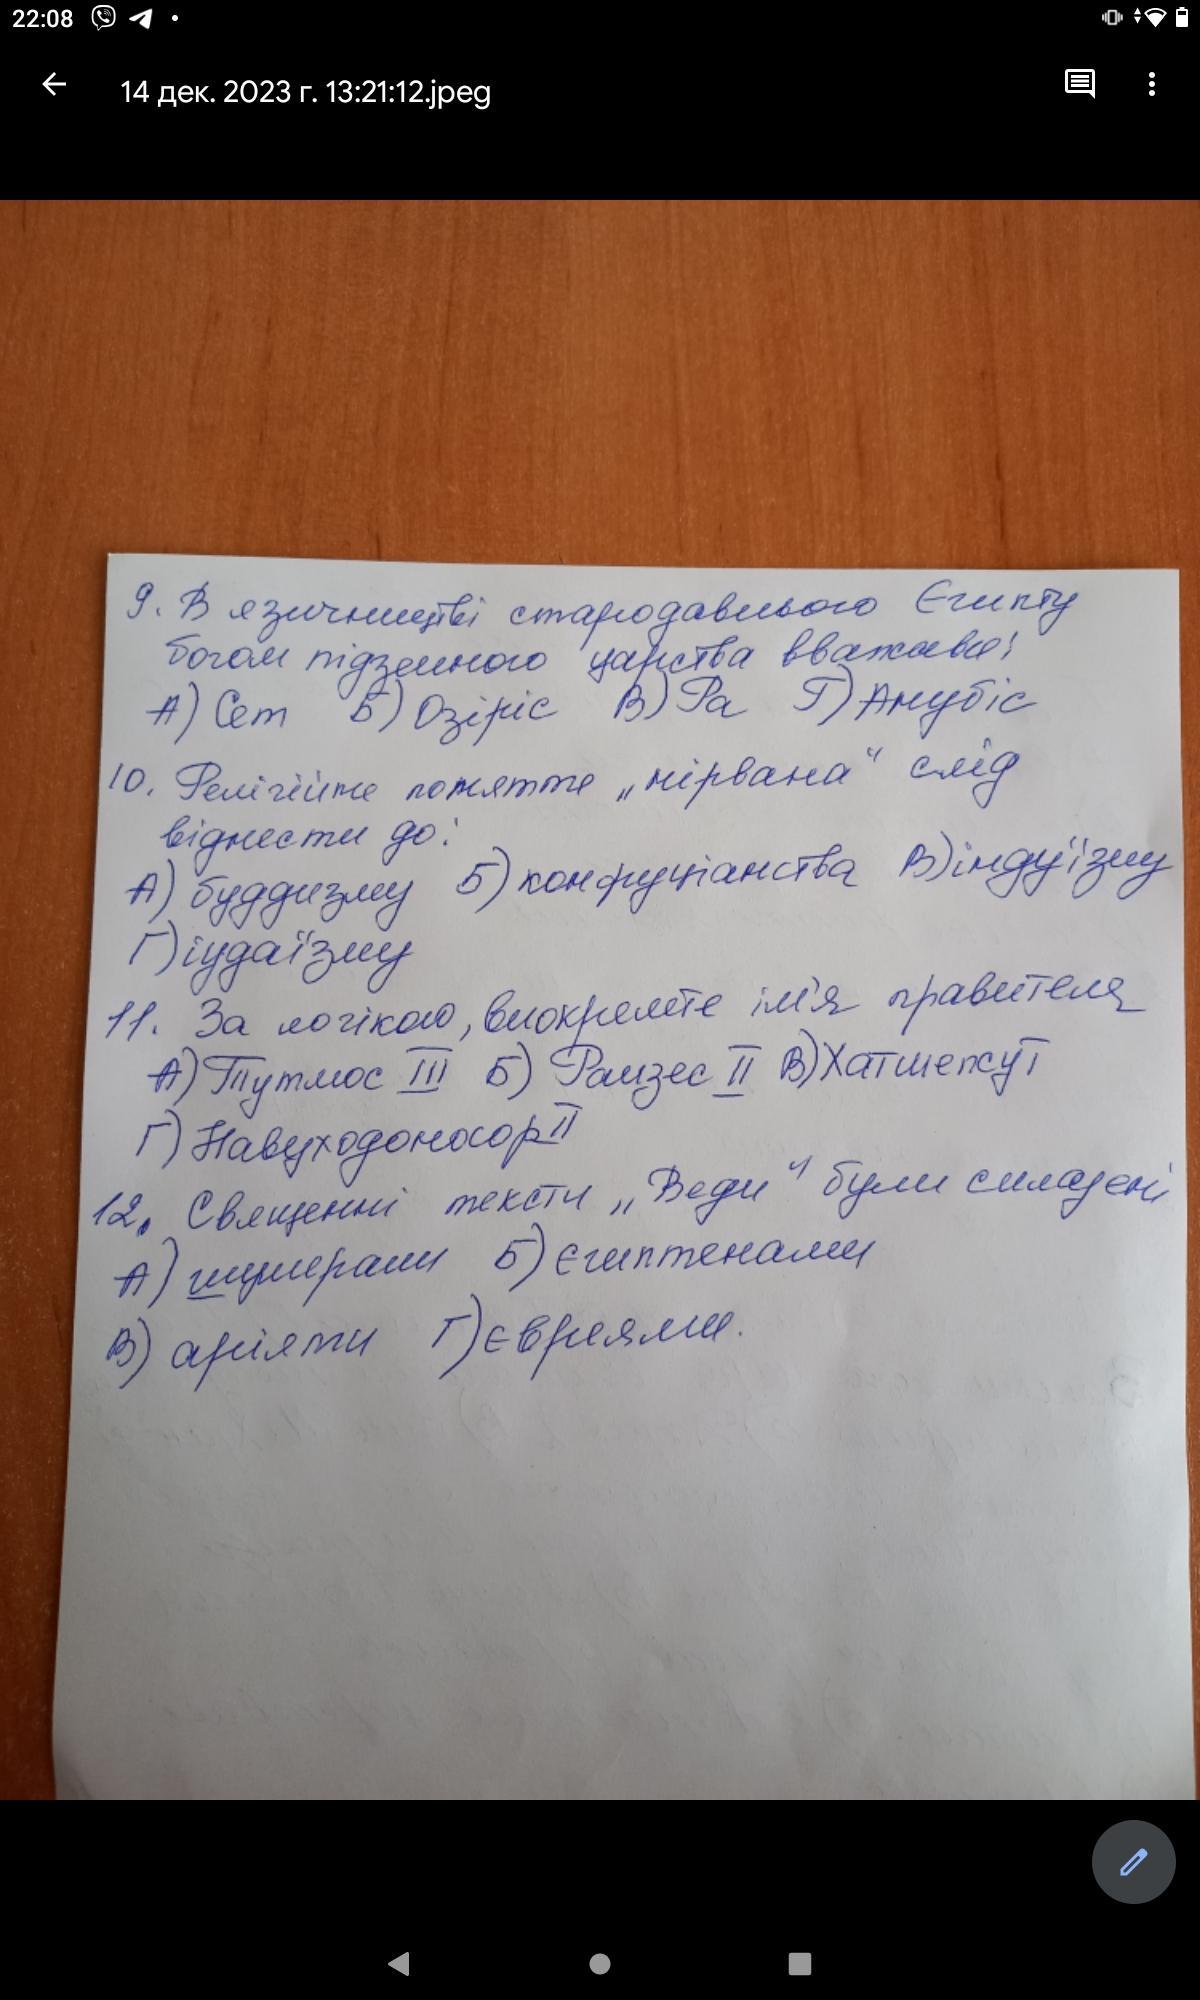 22:08
14 дек. 2023 г. 13:21:12.jpeg
9. В язичництві стародавнього Єгипту
богом підземного царства вважався:
А) Сет Б) Озіріс В) Ра Г) Анубіс
10. Релігійне поняття „нірвана“ слід
віднести до:
А) буддизму Б) конфуціанства В) індуїзму
Г) іудаїзму
11. За логікою, виокремте ім'я правителя
А) Тутмос III Б) Рамзес II В) Хатшепсут
Г) Навуходоносор II
12. Священні тексти „Веди“ були складені
А) шумерами Б) єгиптенами
В) аріями Г) євреями.